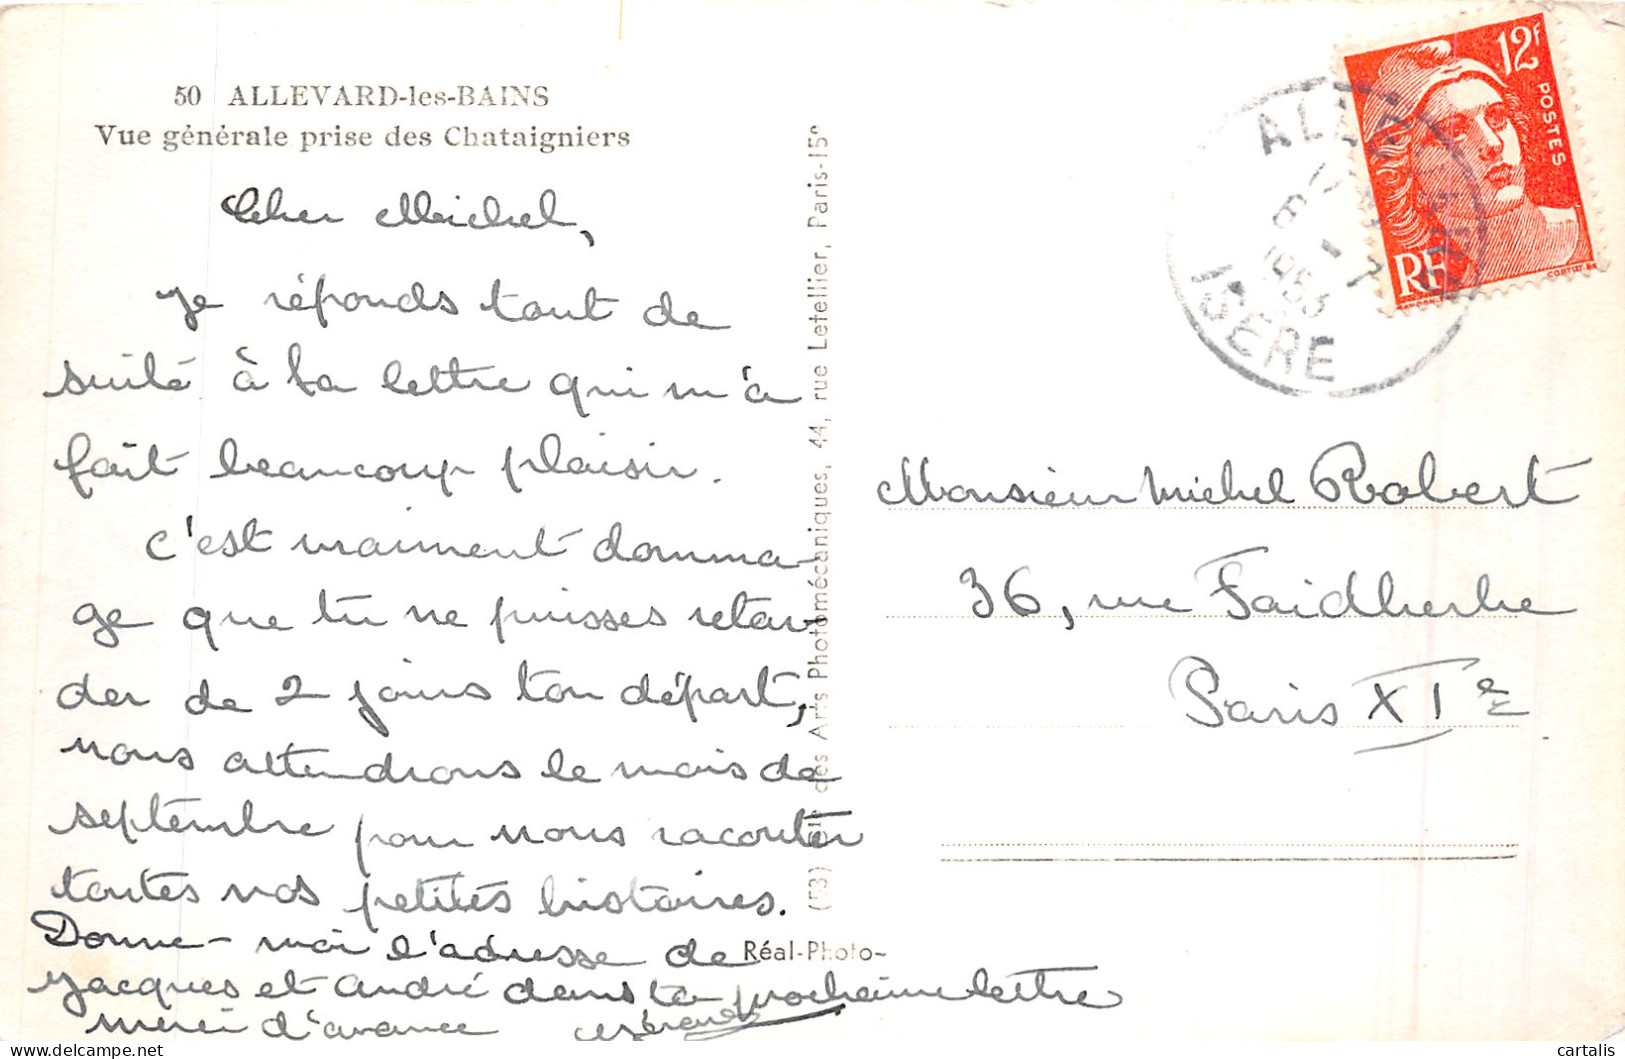 50 ALLEVARD-les-BAINS
Vue générale prise des Chataigniers
Cher Michel,
je réponds tout de
suite à ta lettre qui m'a
fait beaucoup plaisir.
c'est vraiment domma-
ge que tu ne puisses retar-
der de 2 jours ton départ,
nous attendrons le mois de
septembre pour nous raconter
toutes nos petites histoires.
Donne-moi l'adresse de
Jacques et André dans ta prochaine lettre
merci d'avance
(53) Sté des Arts Photomécaniques, 44, rue Letellier, Paris-15e
Réal-Photo-
12F
POSTES
RF
ALLEVARD
8 -7
1953
ISERE
Monsieur Michel Robert
36, rue Faidherbe
Paris XIe
cartalis